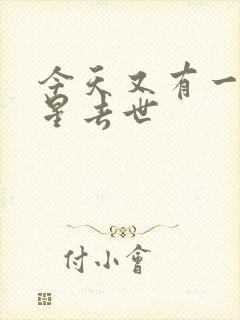 今天又有一
星去世
付小會